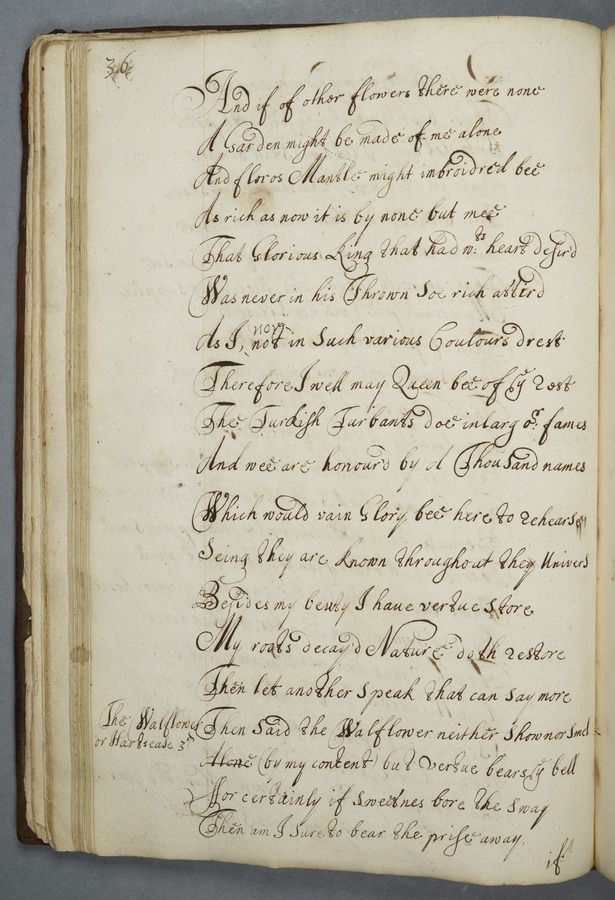 36
And if of other flowers there were none
A Garden might be made of me alone
And floros Mantle might imbroidred bee
As rich as now it is by none but mee
That Glorious King that had ws. heart desir'd
Was never in his Thrown Soe rich attir'd
As I,
now
not in Such various Coulours drest
Therefore I well may Queen bee of ye rest
The Turkish Turbants doe inlarg or. fames
And wee are honour'd by A Thousand names
Which would vain Glory bee here to rehearse
Seing they are known throughout they Univers
Besides my beuty I haue vertue store
My roots decay'd Nature doth restore
Then let another speak that can say more
The Walflower
or Hartsease 3d
Then Said the Walflower neither Show nor Smel
Alone (by my content) but Vertue bears ye bell
For certainly if Sweetnes bore the sway
Then am I Sure to bear the prise away.
if